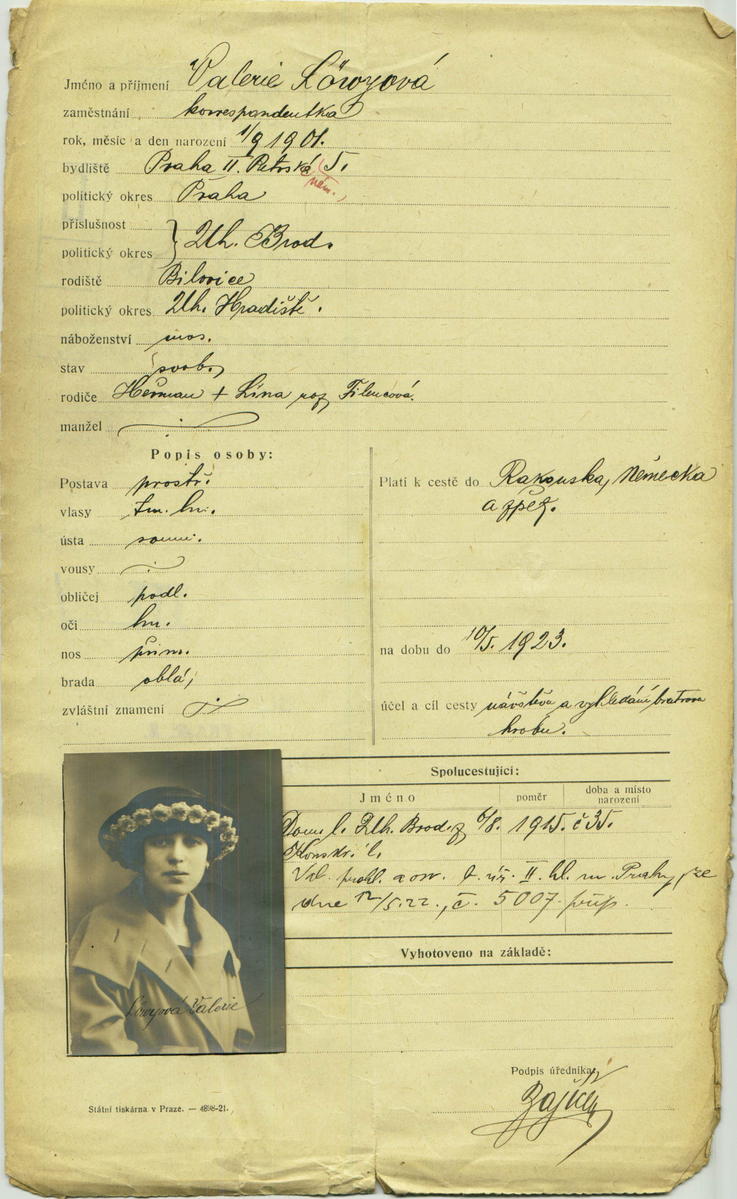 Jméno a příjmení Valerie Löwyová
zaměstnání korrespondentka
rok, měsíc a den narození 1/9 1901.
bydliště Praha II. Petrská 5.
nám.
politický okres Praha
příslušnost
politický okres } Uh. Brod.
rodiště Bilovice
politický okres Uh. Hradiště.
náboženství mos.
stav svob.
rodiče Heřman + Lína roz. Filencová.
manžel
Popis osoby:
Postava prostř.
vlasy tm. hn.
ústa soum.
vousy
obličej podl.
oči hn.
nos přím.
brada oblá,
zvláštní znamení
Platí k cestě do Rakouska, Německa
a zpět.
na dobu do 10/5. 1923.
účel a cíl cesty návštěva a vyhledání bratrova
hrobu.
Spolucestující:
Jméno
poměr
doba a místo
narození
Dom. l. Uh. Brod z 6/8. 1915. č 35.
Konskr. l.
II. hl. m. Prahy, ze
dne 12/5.22., č. 5007. příp.
Löwyová Valerie
Vyhotoveno na základě:
Podpis úředníka:
Státní tiskárna v Praze. — 4898-21.